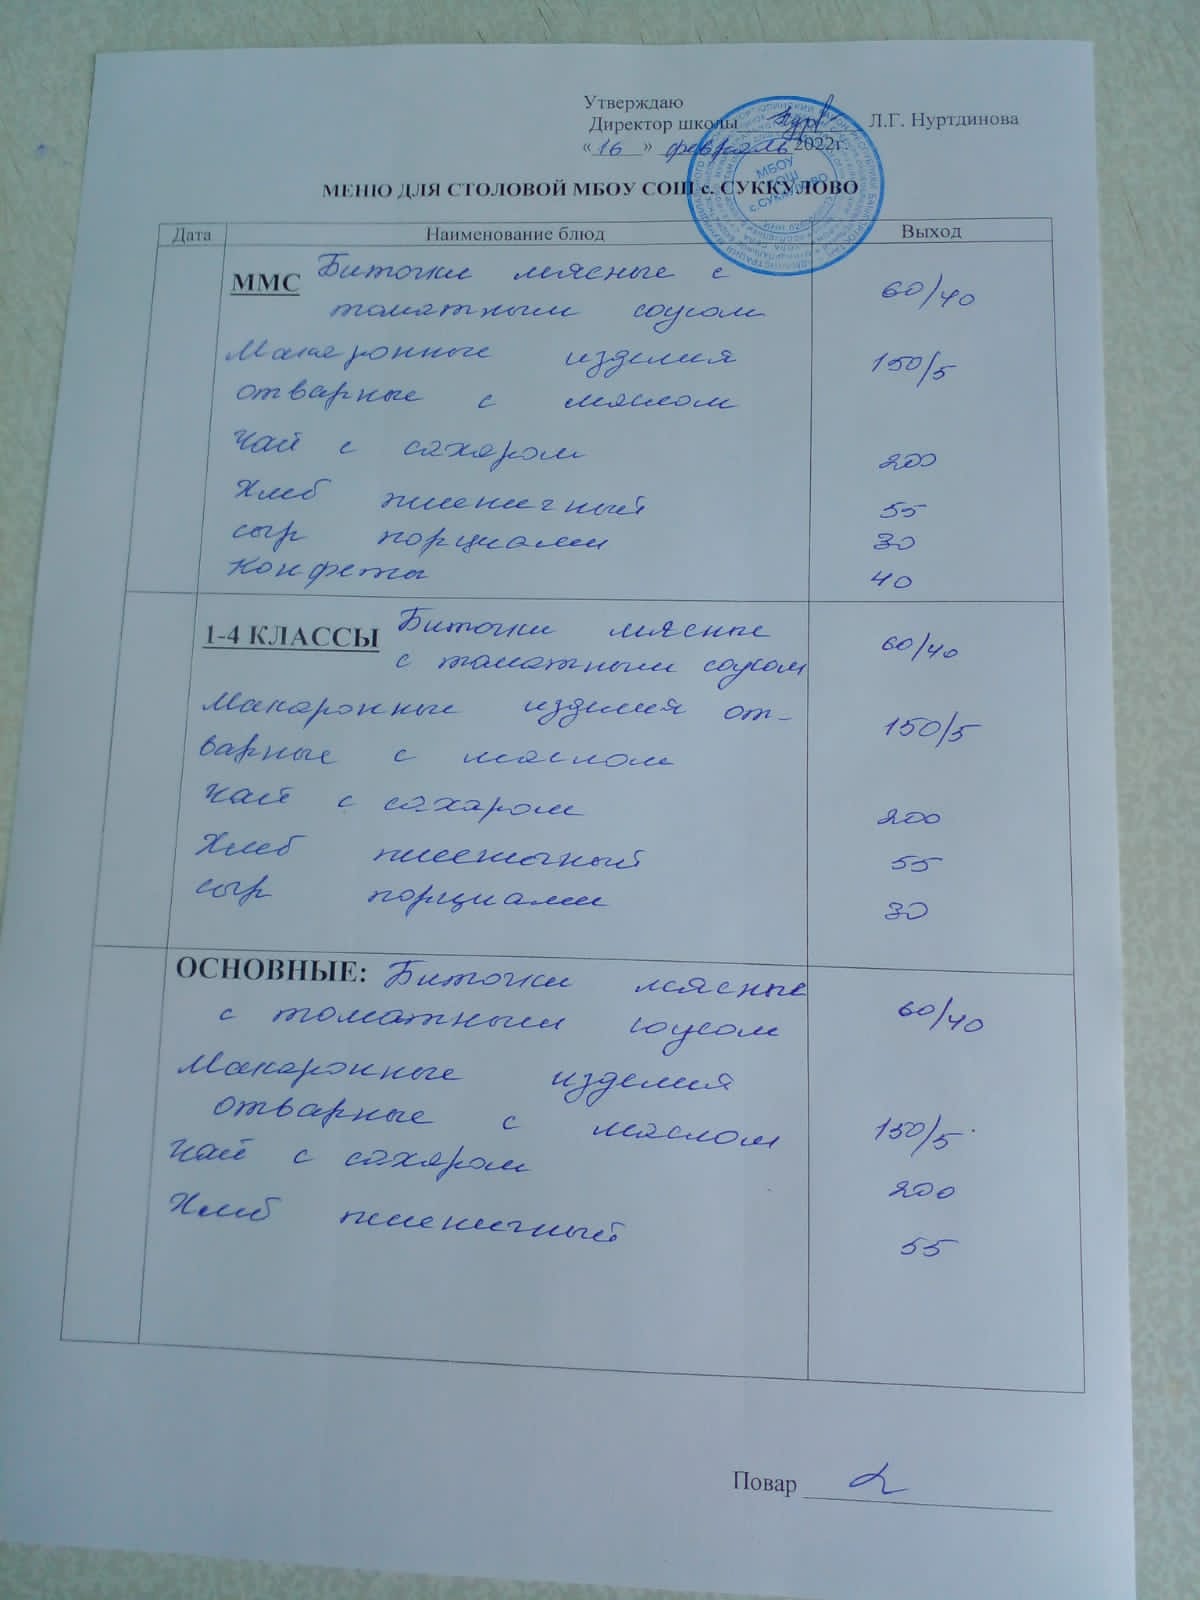 Утверждаю
Директор школы Л.Г. Нуртдинова
«16» февраль 2022г.
МБОУ
СОШ
с.СУККУЛОВО
МЕНЮ ДЛЯ СТОЛОВОЙ МБОУ СОШ с. СУККУЛОВО
Дата Наименование блюд Выход
ММС Биточки мясные с
томатным соусом 60/40
Макаронные изделия 150/5
отварные с маслом
Чай с сахаром 200
Хлеб пшеничный 55
сыр порциами 30
Конфеты 40
1-4 КЛАССЫ Биточки мясные 60/40
с томатным соусом
Макаронные изделия от- 150/5
варные с маслом
Чай с сахаром 200
Хлеб пшеничный 55
сыр порциами 30
ОСНОВНЫЕ: Биточки мясные
с томатным соусом 60/40
Макаронные изделия
отварные с маслом 150/5
Чай с сахаром 200
Хлеб пшеничный 55
Повар